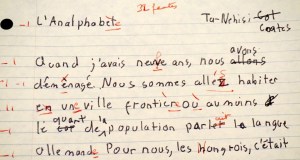 21 fautes
-1 L'Analphabète Ta-Nehisi Cot Coates
-1 Quand j'avais neuve ans, nous allons avons
-1 déménagé. Nous sommes allés habiter
-1 en une ville frontière où au moins
le quart de la population parlait la langue
-1 allemande. Pour nous, les Hongrois, c'était